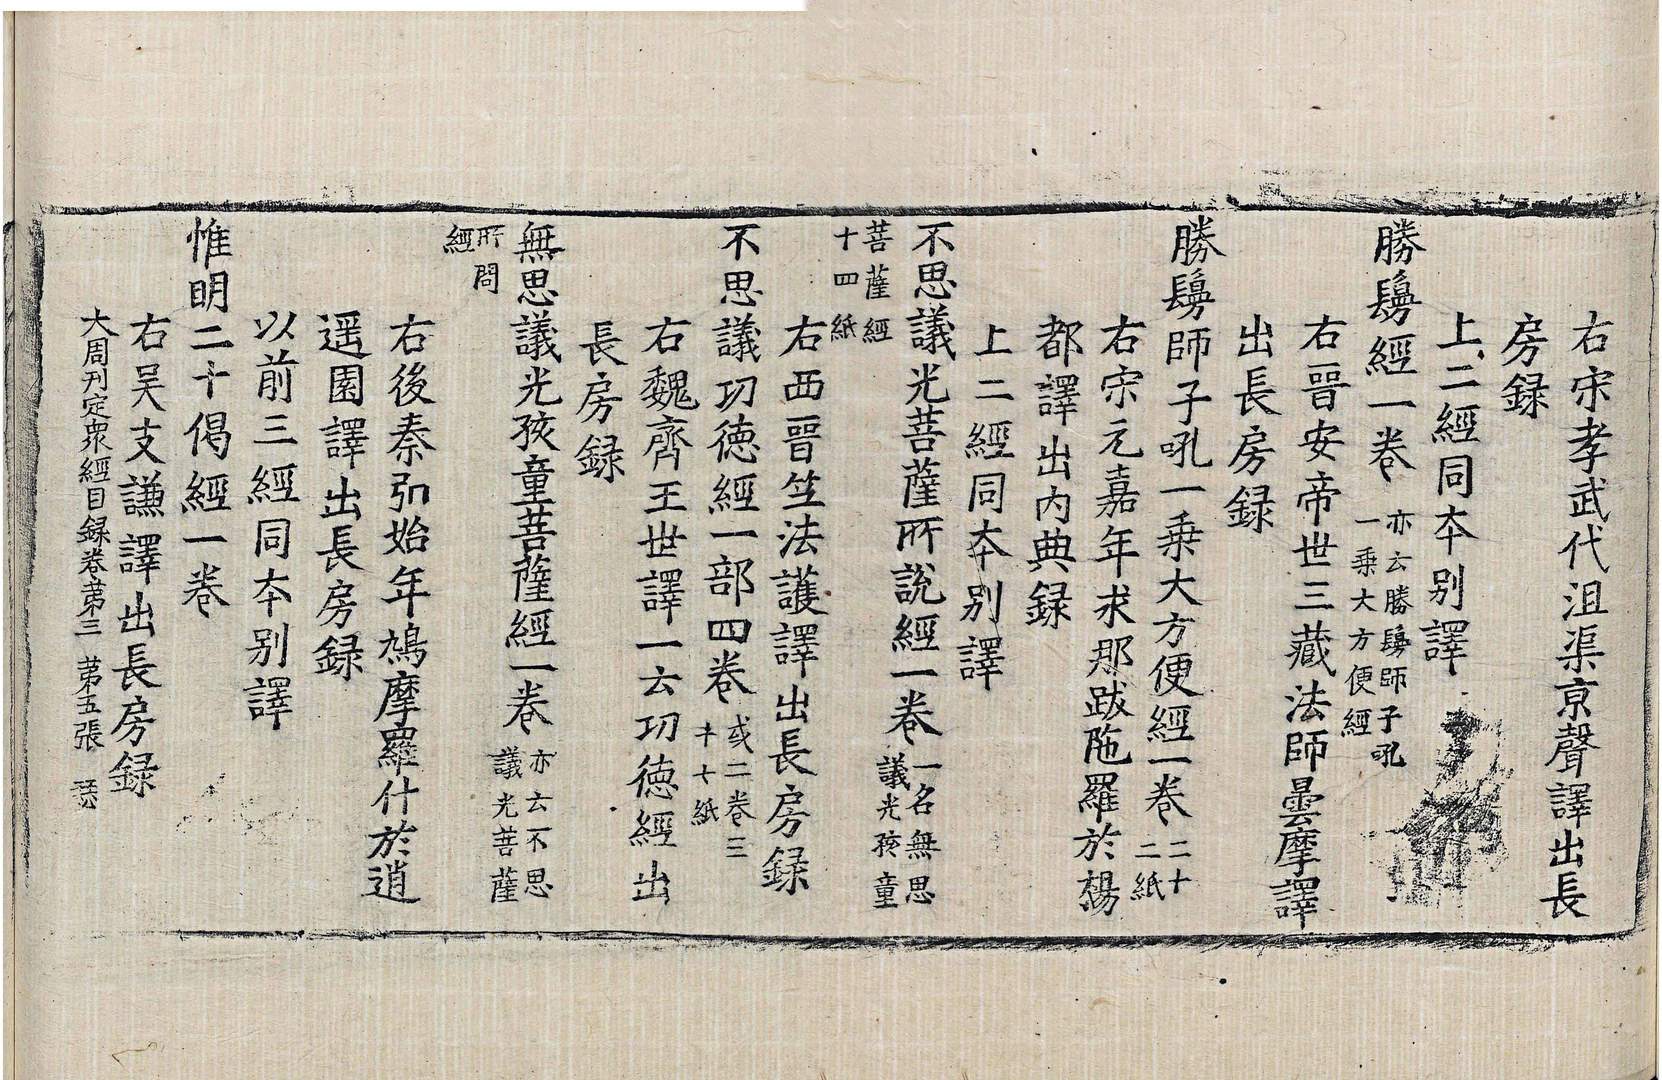 右宋孝武代沮渠京聲譯出長
房録
上二經同本別譯
勝鬘經一卷亦云勝鬘師子吼一乘大方便經
右晉安帝世三藏法師曇摩譯
出長房録
勝鬘師子吼一乘大方便經一卷二十二紙
右宋元嘉年求那跋陁羅於楊
都譯出內典録
上二經同本別譯
不思議光菩薩所説經一卷一名無思議光孩童
菩薩經十四紙
右西晉竺法護譯出長房録
不思議功徳經一部四卷或二卷三十七紙
右魏齊王世譯一云功徳經出
長房録
無思議光孩童菩薩經一卷亦云不思議光菩薩
所問經
右後秦弘始年鳩摩羅什於逍
遥園譯出長房録
以前三經同本別譯
惟明二十偈經一卷
右吴支謙譯出長房録
大周刊定衆經目録卷第三 第五張